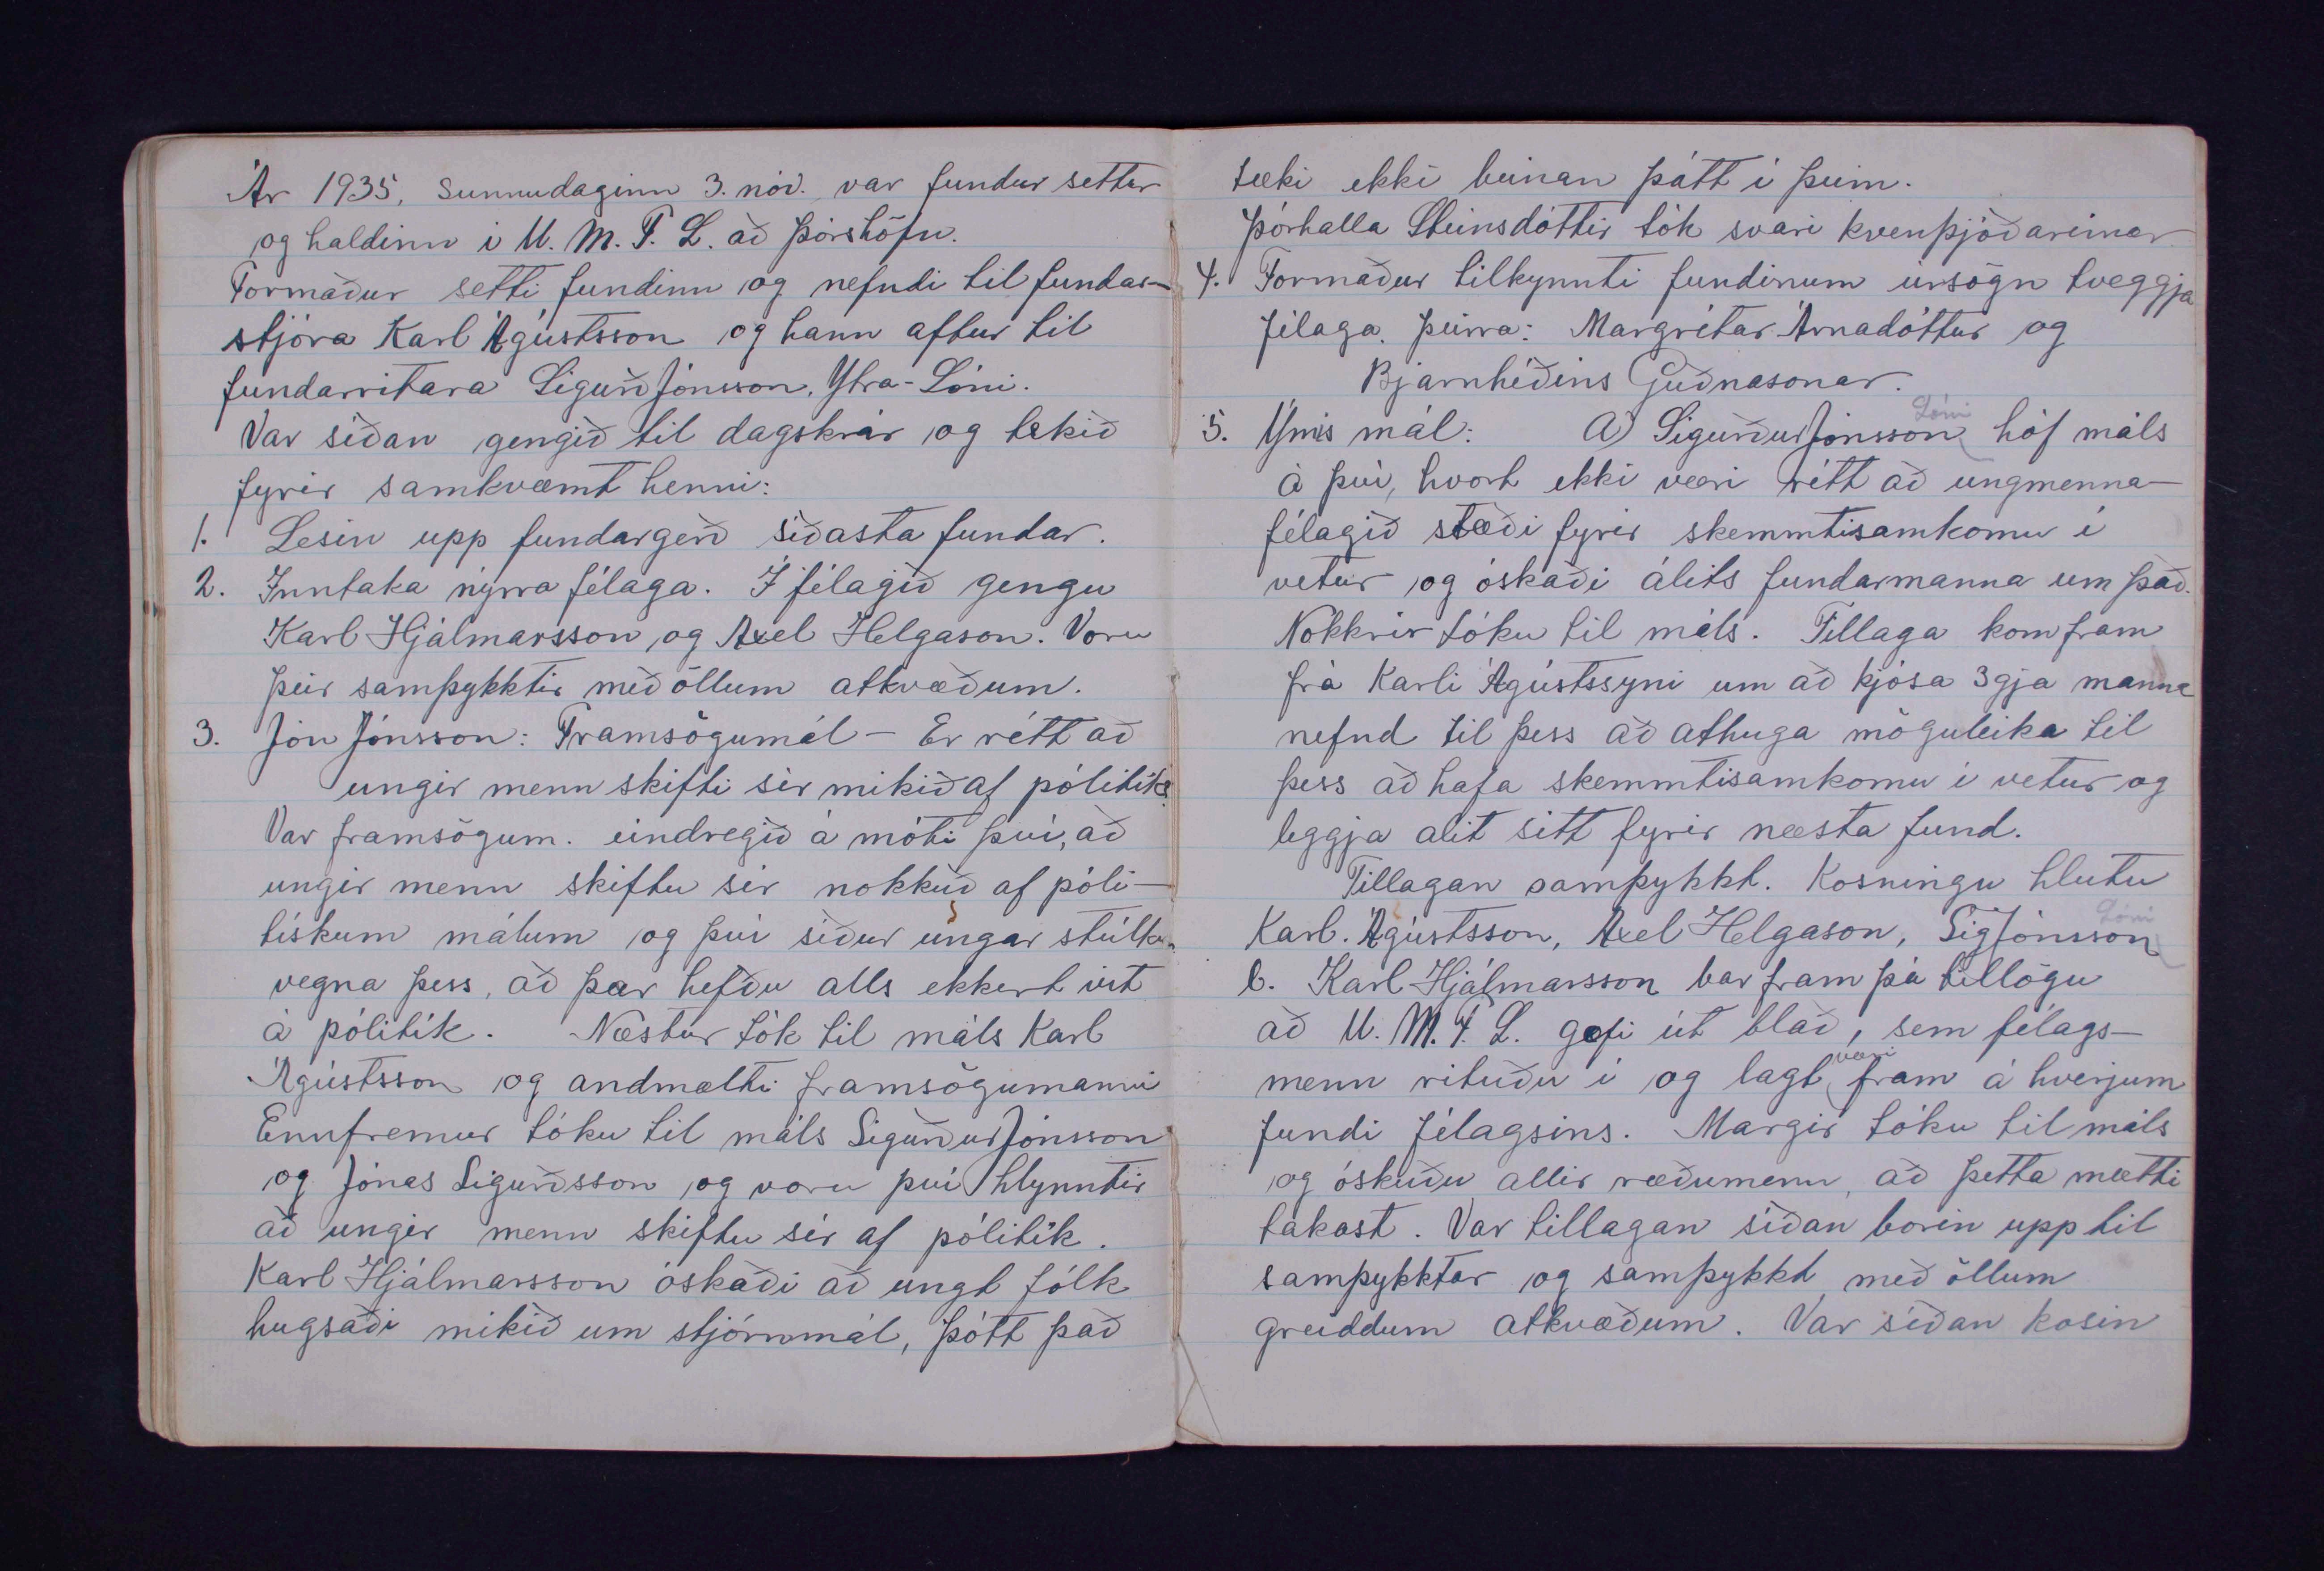 Ár 1935, sunnudaginn 3. nóv. var fundur settur
og haldinn í U. M. F. L. að Þórshöfn.
Formaður setti fundinn og nefndi til fundar-
stjóra Karl Ágústsson og hann aftur til
fundarritara Sigurð Jónsson, Ytra-Lóni.
Var síðan gengið til dagskrár og tekið
fyrir samkvæmt henni:
1. Lesin upp fundargerð síðasta fundar.
2. Inntaka nýrra félaga. Í félagið gengu
Karl Hjálmarsson og Axel Helgason. Voru
þeir samþykktir með öllum atkvæðum.
3. Jón Jónsson: Framsögumál - Er rétt að
ungir menn skifti sér mikið af pólitík?
Var framsögum. eindregið á móti því, að
ungir menn skiftu sér nokkuð af póli-
tískum málum og því síður ungar stúlkur
vegna þess, að þær hefðu alls ekkert vit
á pólitík. Næstur tók til máls Karl
Ágústsson og andmælti framsögumanni
Ennfremur tóku til máls Sigurður Jónsson
og Jónas Sigurðsson og voru því hlynntir
að ungir menn skiftu sér af pólitík.
Karl Hjálmarsson óskaði að ungt fólk
hugsaði mikið um stjórnmál, þótt það
tæki ekki beinan þátt í þeim.
Þórhalla Steinsdóttir tók svari kvenþjóðarinnar
4. Formaður tilkynnti fundinum úrsögn tveggja
félaga. þeirra: Margrétar Árnadóttur og
Bjarnhéðins Guðnasonar.
5. Ýmis mál: A) Sigurður Jónsson Lóni hóf máls
á því, hvort ekki væri rétt að ungmenna-
félagið stæði fyrir skemmtisamkomu í
vetur og óskaði álits fundarmanna um það.
Nokkrir tóku til máls. Tillaga kom fram
frá Karli Ágústssyni um að kjósa 3gja manna
nefnd til þess að athuga möguleika til
þess að hafa skemmtisamkomu í vetur og
leggja alit sitt fyrir næsta fund.
Tillagan samþykkt. Kosningu hlutu
Karl. Ágústsson, Axel Helgason, Sig Jónsson Lóni
b. Karl Hjálmarsson bar fram þá tillögu
að U. M. F. L. gefi út blað, sem félags-
menn rituðu í og lagt væri fram á hverjum
fundi félagsins. Margir tóku til máls
og óskuðu allir ræðumenn, að þetta mætti
takast. Var tillagan síðan borin upp til
samþykktar og samþykkt með öllum
greiddum atkvæðum. Var síðan kosin